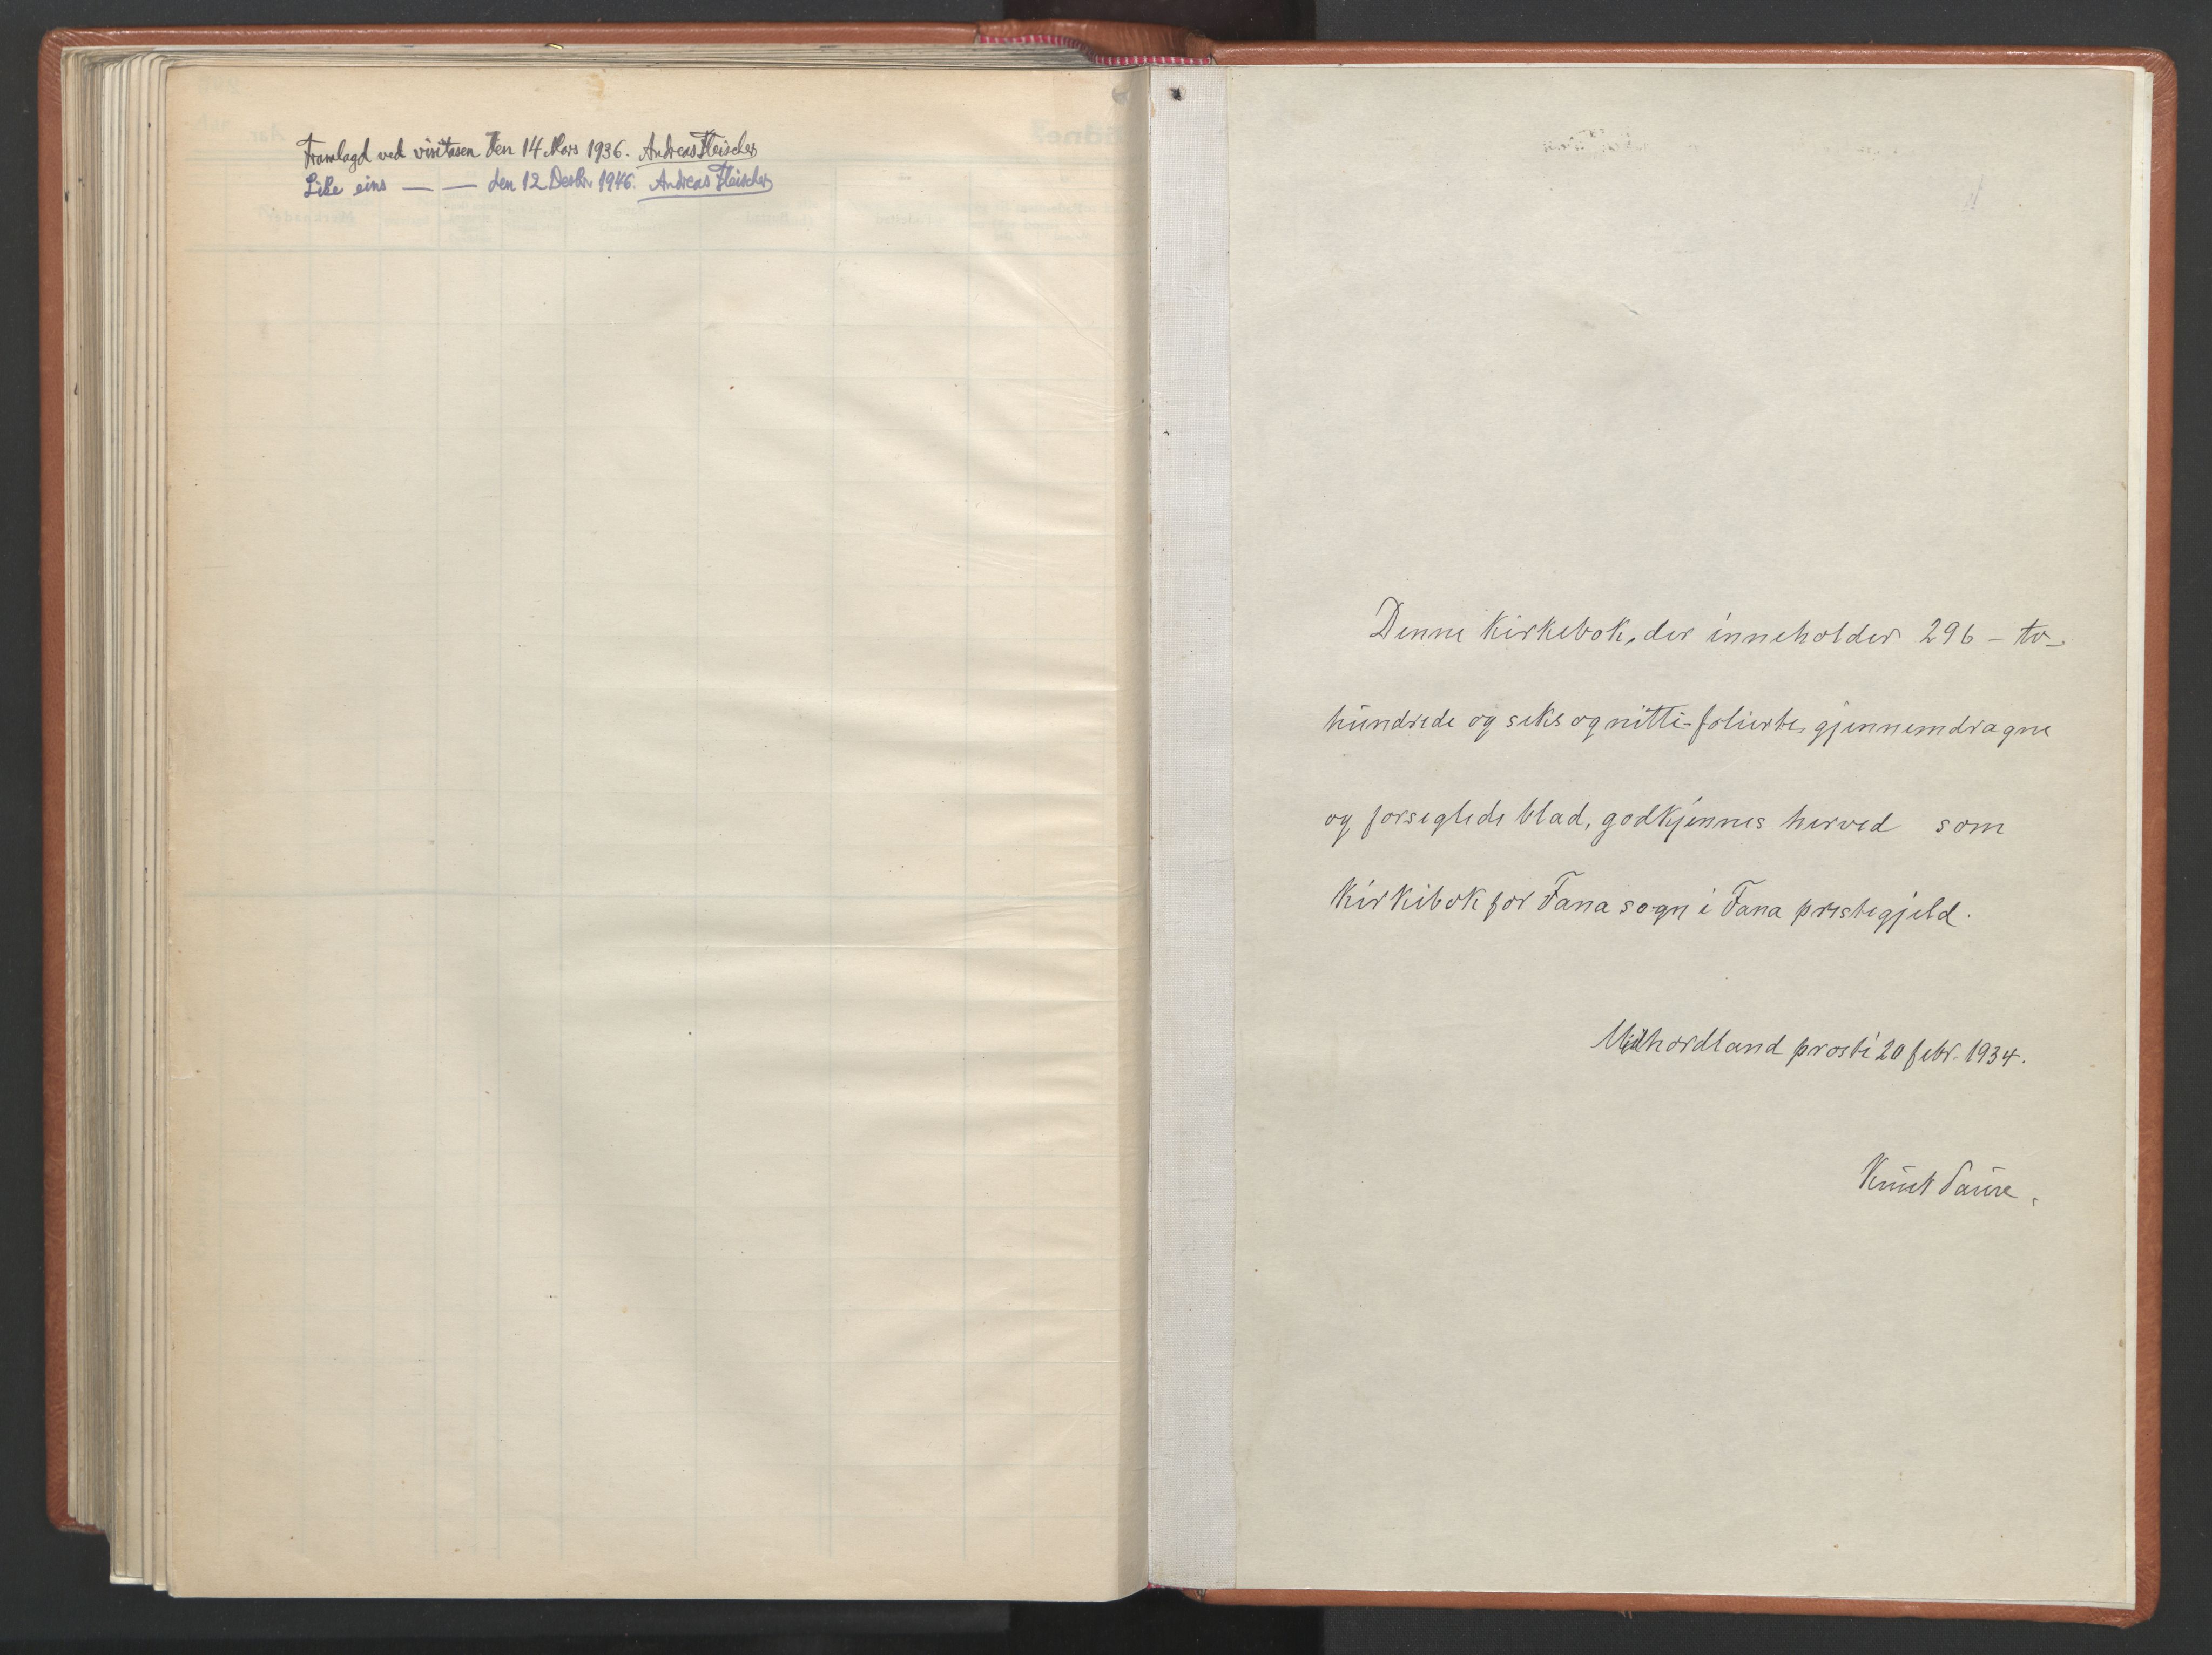 Framlagd ved visitasen den 14 Mars 1936. Andreas Fleischer
Like eins — — den 12 Desbr. 1946. Andreas Fleischer
Denne kirkebok, der inneholder 296 – to-
hundrede og seks og nitti – folierte, gjennemdragne
og forseglede blad, godkjennes herved som
kirkebok for Fana sogn i Fana prestegjeld.
Midhordland prosti 20 febr. 1934.
Knut